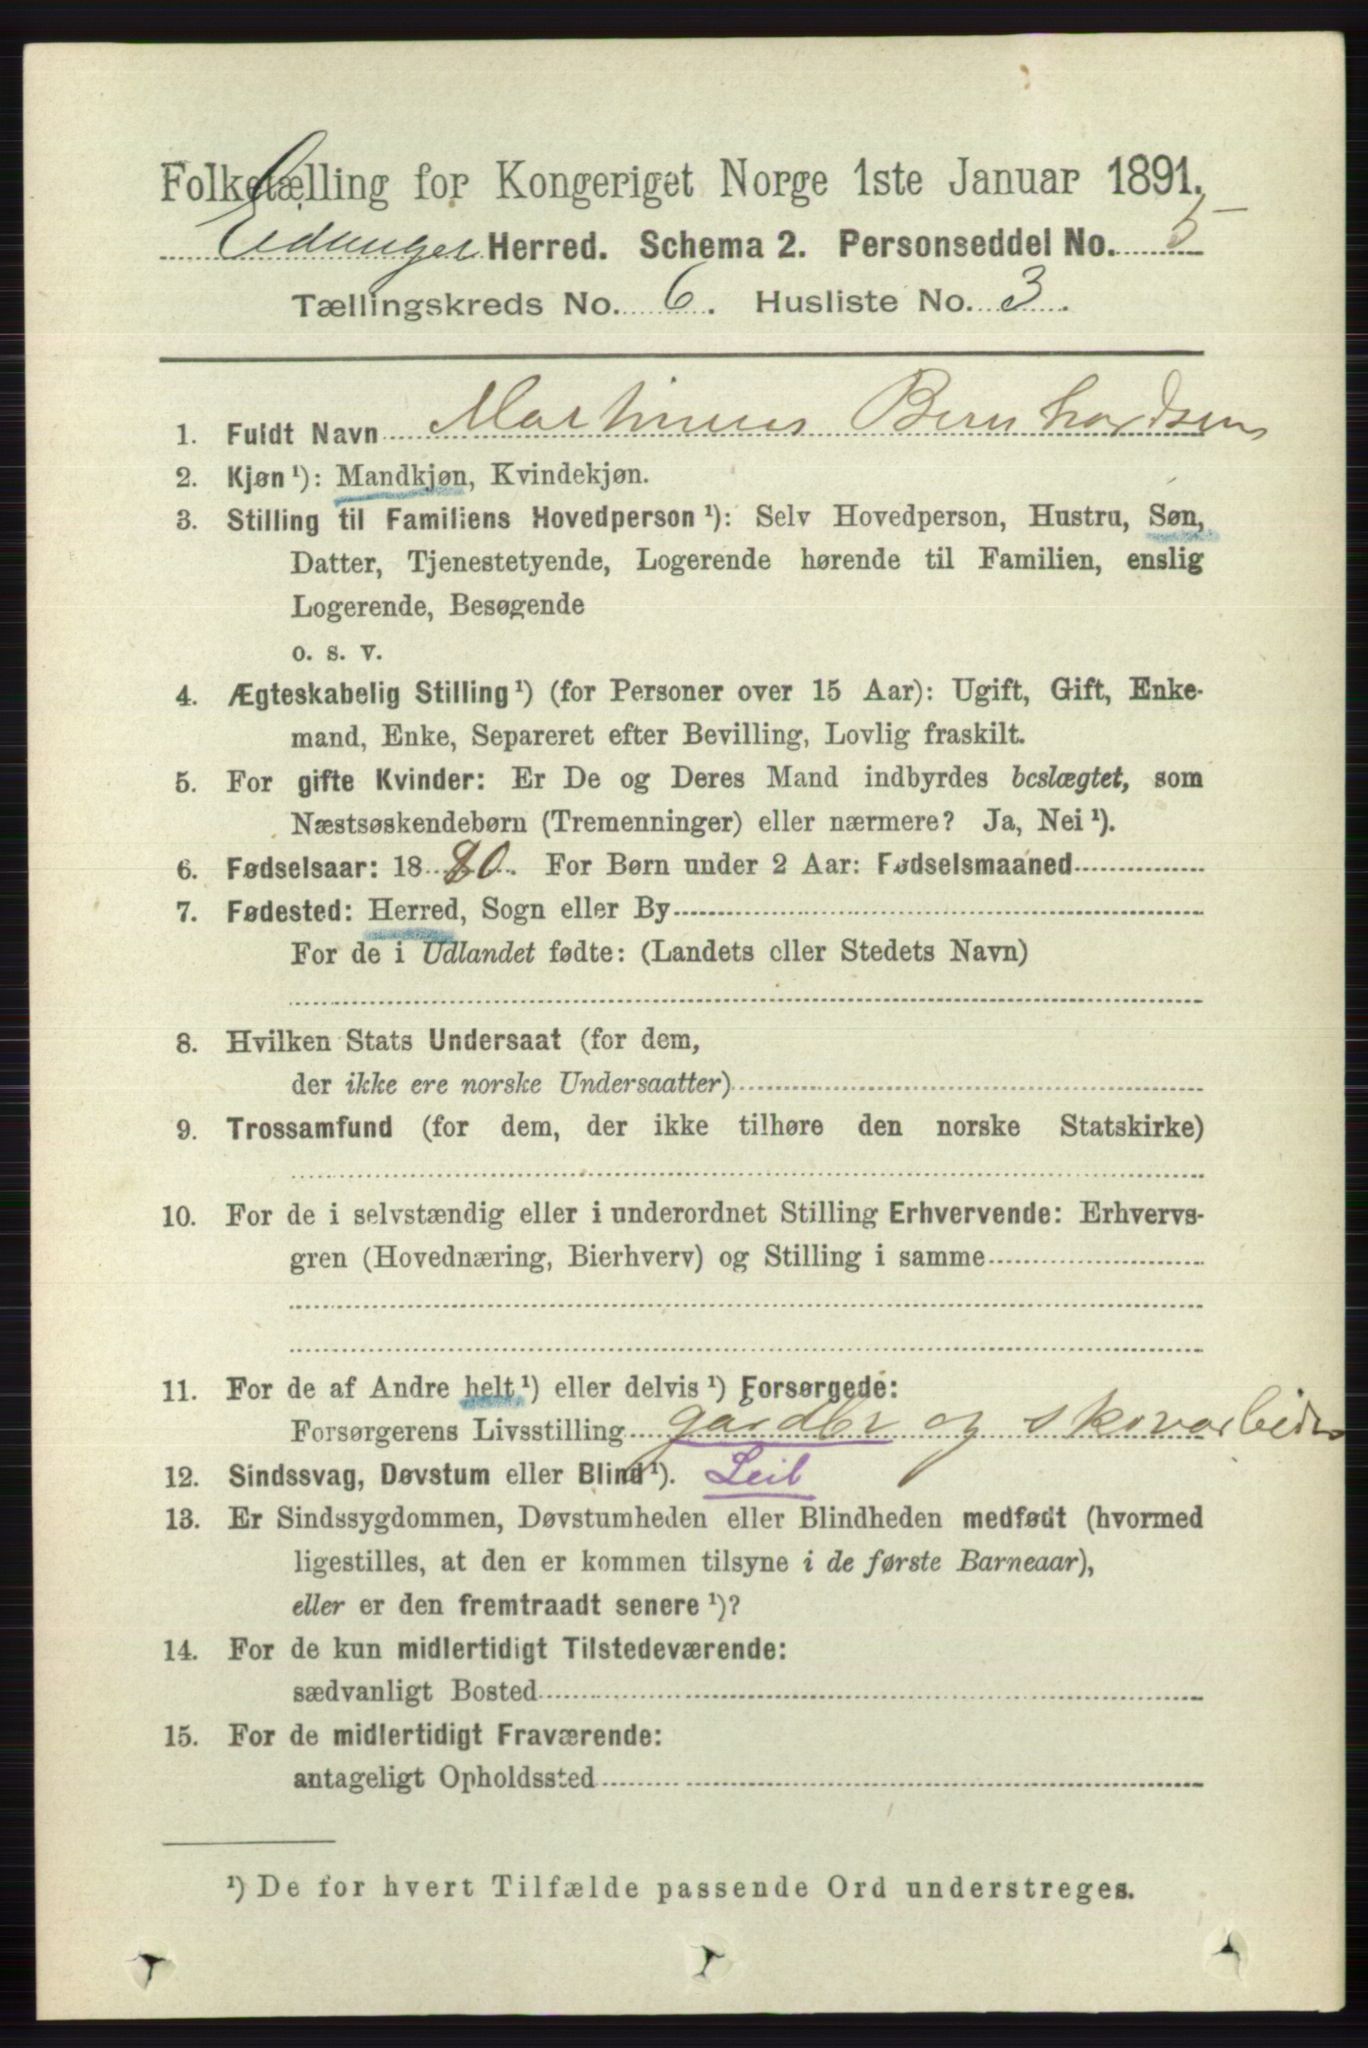 Folketælling for Kongeriget Norge 1ste Januar 1891.
Eidanger Herred. Schema 2. Personseddel No. 5
Tællingskreds No. 6. Husliste No. 3.
1. Fuldt Navn Martinius Bernhardsen
2. Kjøn ¹): Mandkjøn, Kvindekjøn.
3. Stilling til Familiens Hovedperson ¹): Selv Hovedperson, Hustru, Søn,
Datter, Tjenestetyende, Logerende hørende til Familien, enslig
Logerende, Besøgende
o. s. v.
4. Ægteskabelig Stilling ¹) (for Personer over 15 Aar): Ugift, Gift, Enke-
mand, Enke, Separeret efter Bevilling, Lovlig fraskilt.
5. For gifte Kvinder: Er De og Deres Mand indbyrdes beslægtet, som
Næstsøskendebørn (Tremenninger) eller nærmere? Ja, Nei ¹).
6. Fødselsaar: 1880. For Børn under 2 Aar: Fødselsmaaned
7. Fødested: Herred, Sogn eller By
For de i Udlandet fødte: (Landets eller Stedets Navn)
8. Hvilken Stats Undersaat (for dem,
der ikke ere norske Undersaatter)
9. Trossamfund (for dem, der ikke tilhøre den norske Statskirke)
10. For de i selvstændig eller i underordnet Stilling Erhvervende: Erhvervs-
gren (Hovednæring, Bierhverv) og Stilling i samme
11. For de af Andre helt ¹) eller delvis ¹) Forsørgede:
Forsørgerens Livsstilling gardbr og skovarbeider
12. Sindssvag, Døvstum eller Blind ¹). Leil
13. Er Sindssygdommen, Døvstumheden eller Blindheden medfødt (hvormed
ligestilles, at den er kommen tilsyne i de første Barneaar),
eller er den fremtraadt senere ¹)?
14. For de kun midlertidigt Tilstedeværende:
sædvanligt Bosted
15. For de midlertidigt Fraværende:
antageligt Opholdssted
¹) De for hvert Tilfælde passende Ord understreges.